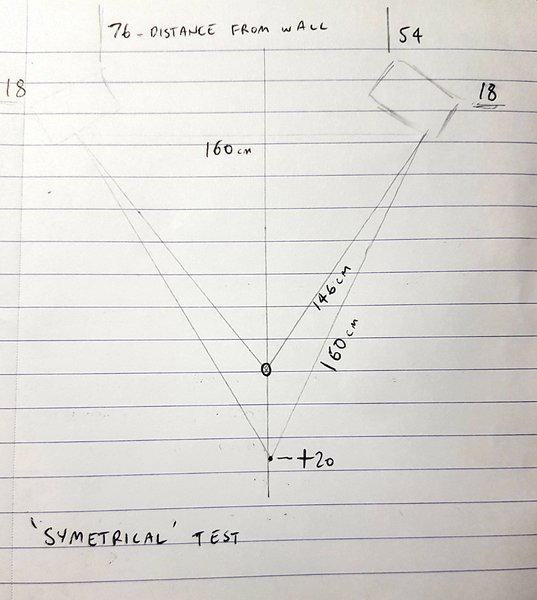 76 - DISTANCE FROM WALL
54
18
18
160cm
146cm
160cm
- +20
'SYMETRICAL' TEST